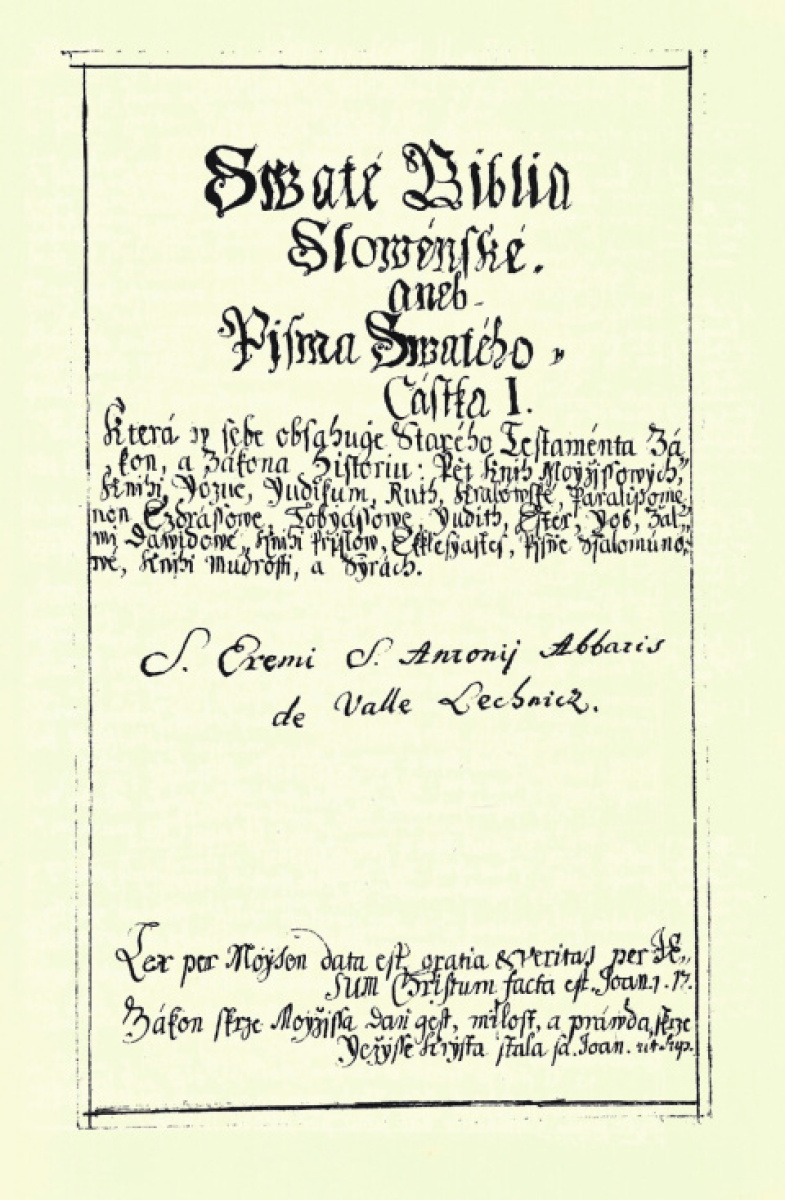 Swaté Biblia
Slowénské.
aneb
Pisma Swatého
Cástka I.
Která w sebe obsahuge Starého Testaménta Zá-
kon, a Zákona Historiu: Pět Knih Moyžissowých,
Knihi, Yozue, Yudikum, Ruth, Kralowské, Paralipome-
non Ezdrássowe, Tobyássowe, Yudith, Ester, Yob, Žal-
mi Dawidowé, Knihi Přyslow, Ekklesyastes, Pisně Ssalomúno-
wé, Knihi Mudrosti, a Syrách.
S. Eremi S. Antonij Abbatis
de Valle Lechnicz.
Lex per Moysen data est, gratia & veritas per JE-
SUM Christum facta est. Joan. 1. 17.
Zákon skrze Moyžissa dan gest, milost, a prawda, skrze
Yežisse Krysta stala sa. Joan.